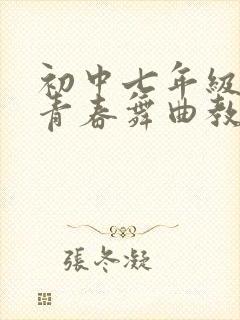 初中七年級
青春舞曲教
張冬凝